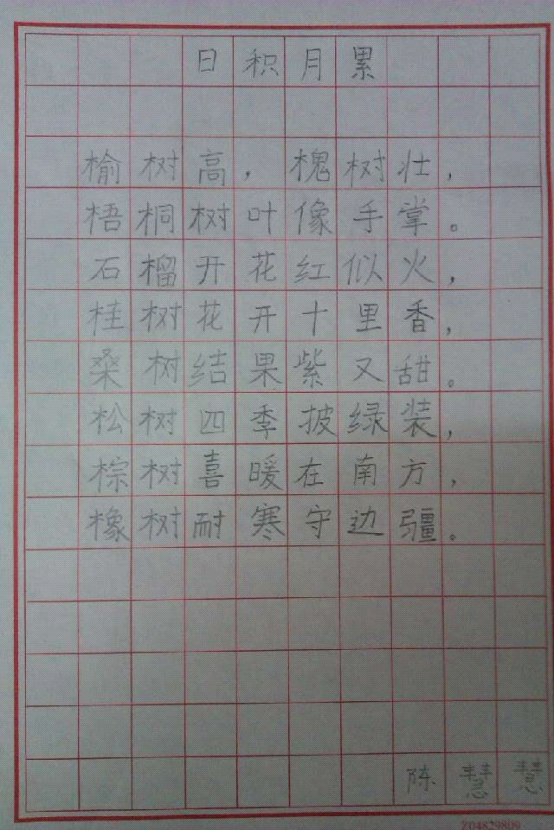 日积月累
榆树高，槐树壮，
梧桐树叶像手掌。
石榴开花红似火，
桂树花开十里香，
桑树结果紫又甜。
松树四季披绿装，
棕树喜暖在南方，
橡树耐寒守边疆。
陈慧慧